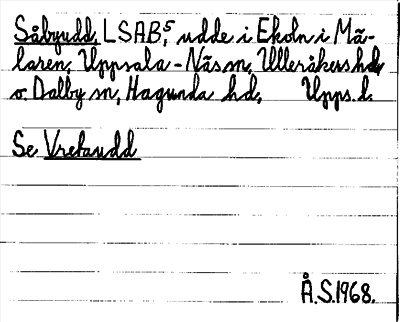 Såbyudd, LSAB⁵, udde i Ekoln i Mä-
laren, Uppsala-Näs sn, Ulleråkers hd,
o. Dalby sn, Hagunda hd, Upps. l.
Se Vretaudd
Å.S.1968.